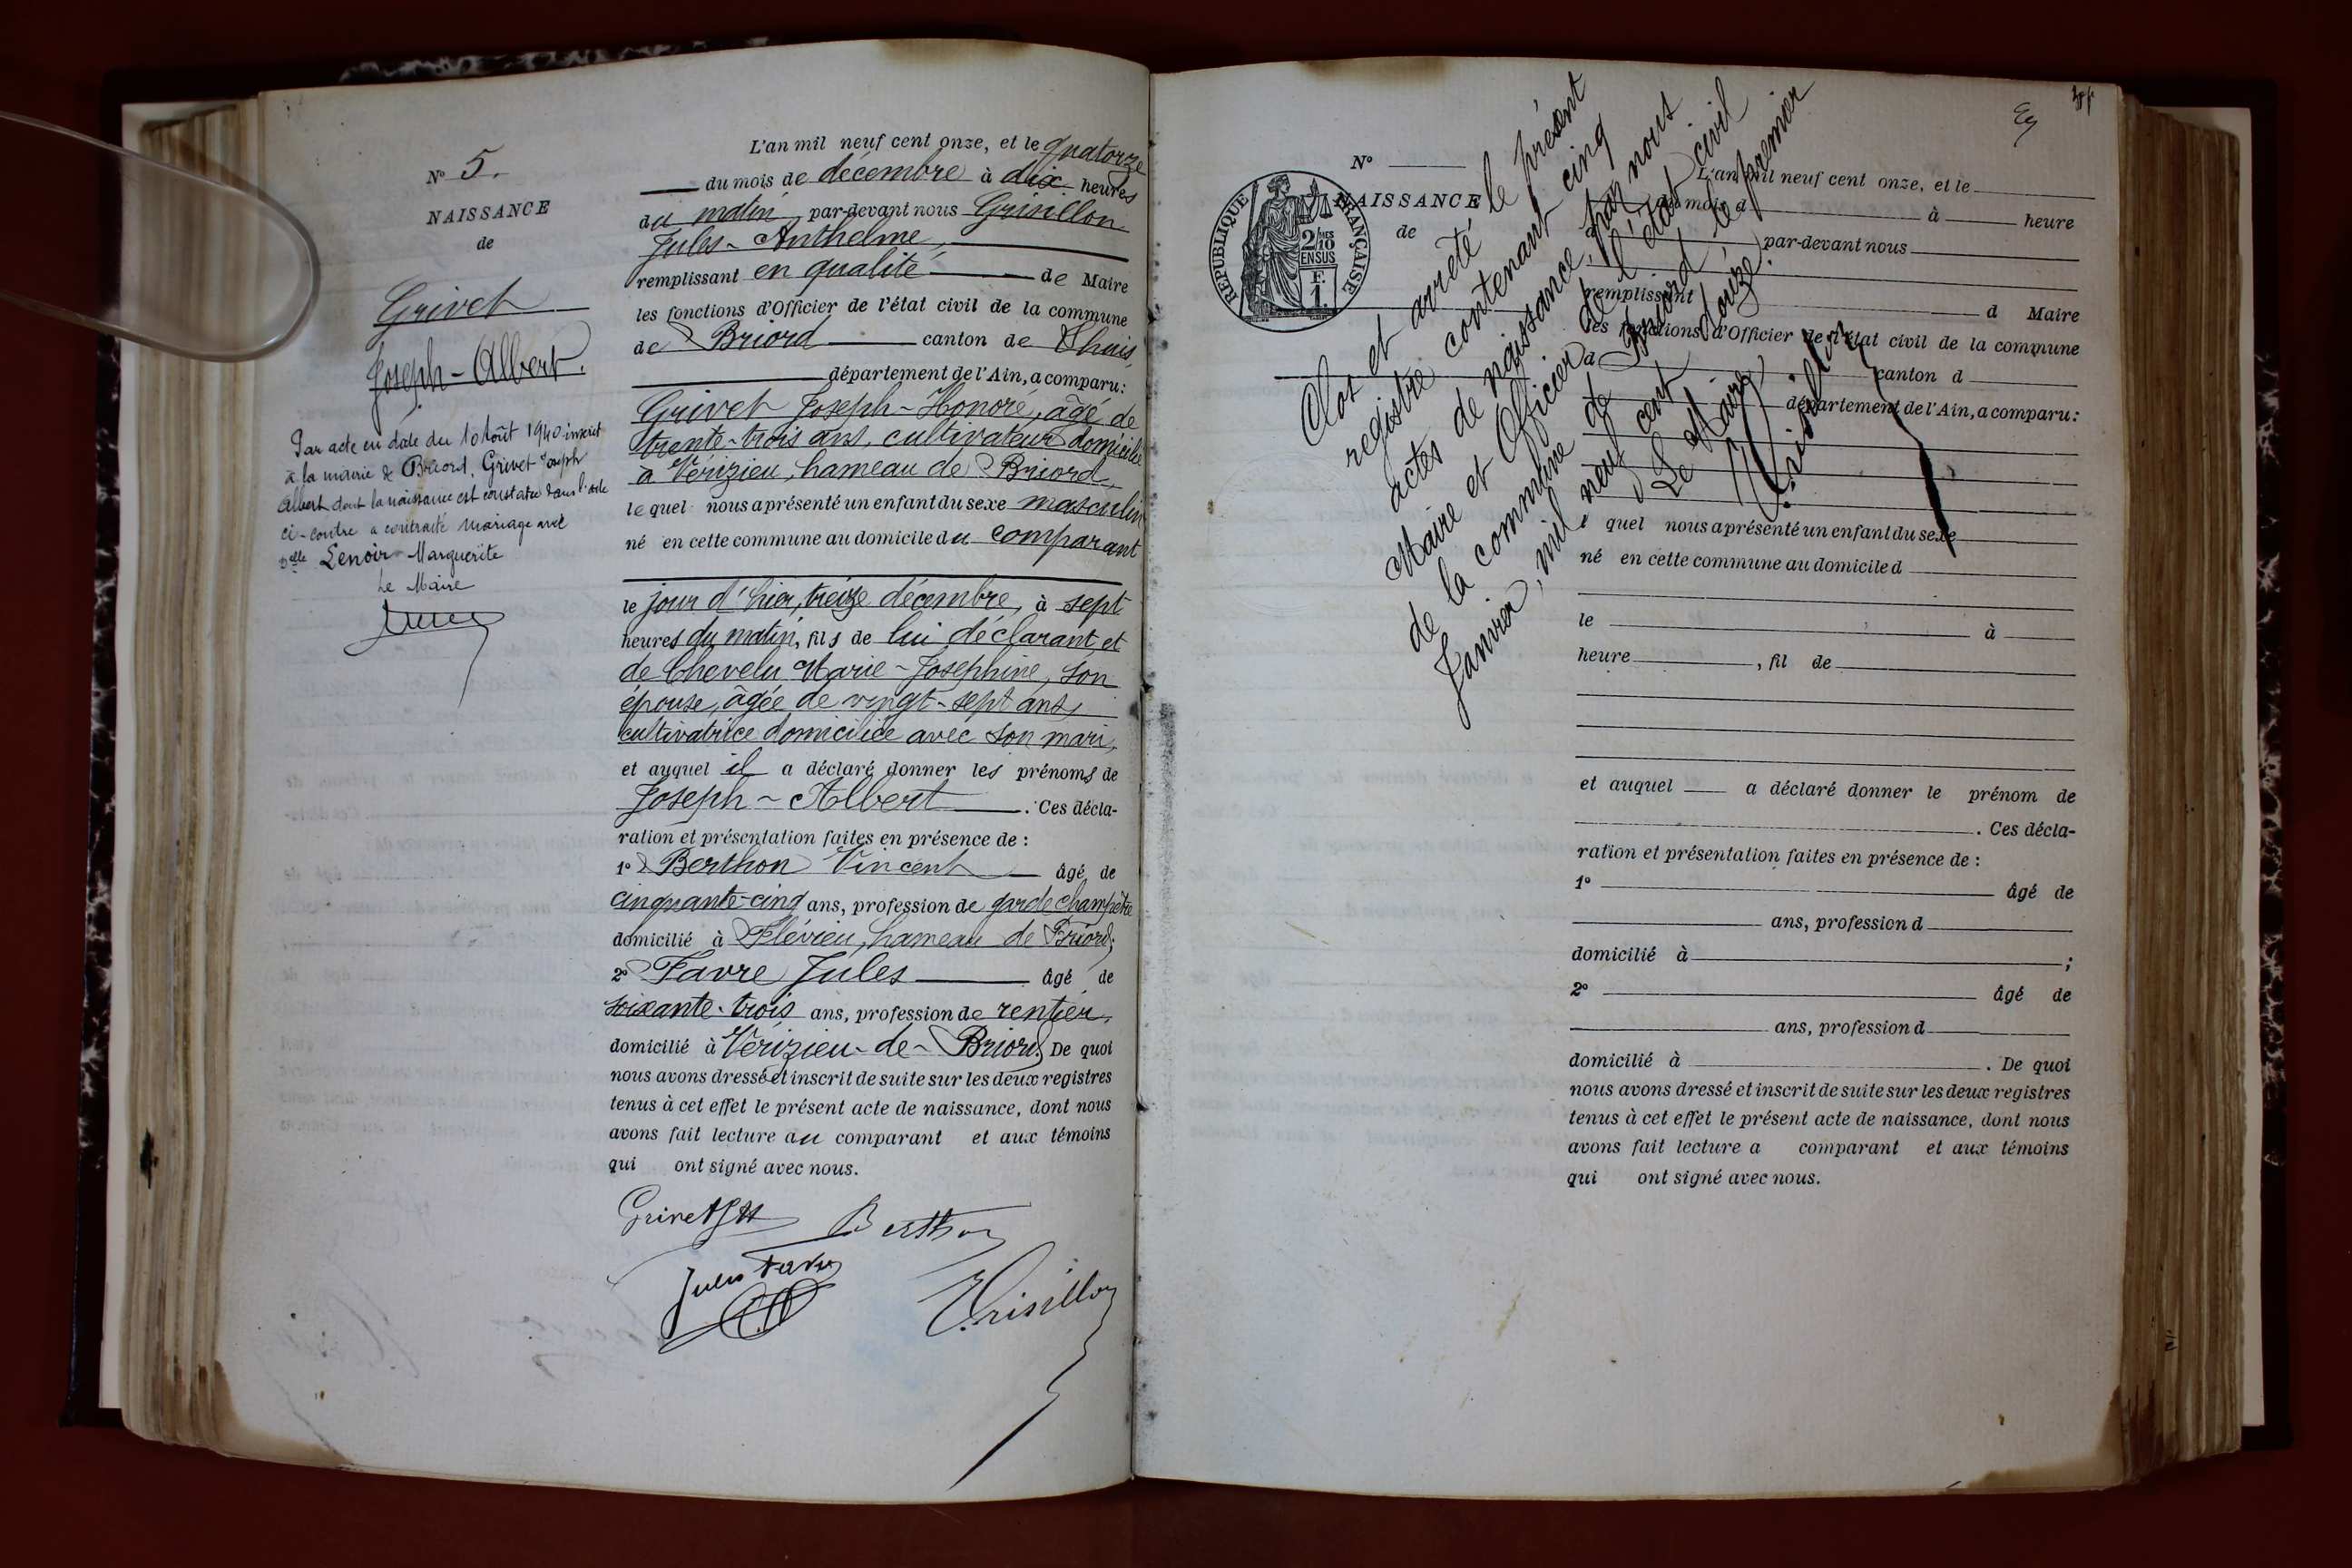 N° 5.
NAISSANCE
de
Grivet
Joseph-Albert.
Par acte en date du 10 Août 1940 inscrit
à la mairie de Briord, Grivet Joseph
Albert dont la naissance est constatée dans l'acte
ci-contre a contracté mariage avec
Delle Lenoir Marguerite
Le Maire
L'an mil neuf cent onze, et le quatorze
du mois de décembre à dix heures
du matin par-devant nous Grisillon
Jules-Anthelme,
remplissant en qualité de Maire
les fonctions d'Officier de l'état civil de la commune
de Briord canton de Lhuis
département de l'Ain, a comparu:
Grivet Joseph-Honoré, âgé de
trente-trois ans, cultivateur domicilié
à Vérizieu, hameau de Briord,
lequel nous a présenté un enfant du sexe masculin
né en cette commune au domicile du comparant
le jour d'hier, treize décembre, à sept
heures du matin, fils de lui déclarant et
de Chevelu Marie-Josephine, son
épouse, âgée de vingt-sept ans,
cultivatrice domiciliée avec son mari,
et auquel il a déclaré donner les prénoms de
Joseph-Albert. Ces décla-
ration et présentation faites en présence de :
1° Berthon Vincent âgé de
cinquante-cinq ans, profession de garde champêtre
domicilié à Flévieu, hameau de Briord;
2° Favre Jules âgé de
soixante-trois ans, profession de rentier,
domicilié à Vérizieu-de-Briord. De quoi
nous avons dressé et inscrit de suite sur les deux registres
tenus à cet effet le présent acte de naissance, dont nous
avons fait lecture au comparant et aux témoins
qui ont signé avec nous.
Grivet JH
Berthon
Jules Favre
Grisillon
N°
NAISSANCE
de
RÉPUBLIQUE FRANÇAISE
2/10 MES
EN SUS
F.
1.
Clos et arrêté le présent
registre contenant cinq
actes de naissance, par nous
Maire et Officier de l'état civil
de la commune de Briord le premier
Janvier, mil neuf cent douze.
Le Maire
Grisillon
L'an mil neuf cent onze, et le
du mois d à heure
par-devant nous
remplissant d Maire
les fonctions d'Officier de l'état civil de la commune
d canton d
département de l'Ain, a comparu:
l quel nous a présenté un enfant du sexe
né en cette commune au domicile d
le à
heure , fil de
et auquel a déclaré donner le prénom de
. Ces décla-
ration et présentation faites en présence de :
1° âgé de
ans, profession d
domicilié à ;
2° âgé de
ans, profession d
domicilié à . De quoi
nous avons dressé et inscrit de suite sur les deux registres
tenus à cet effet le présent acte de naissance, dont nous
avons fait lecture a comparant et aux témoins
qui ont signé avec nous.